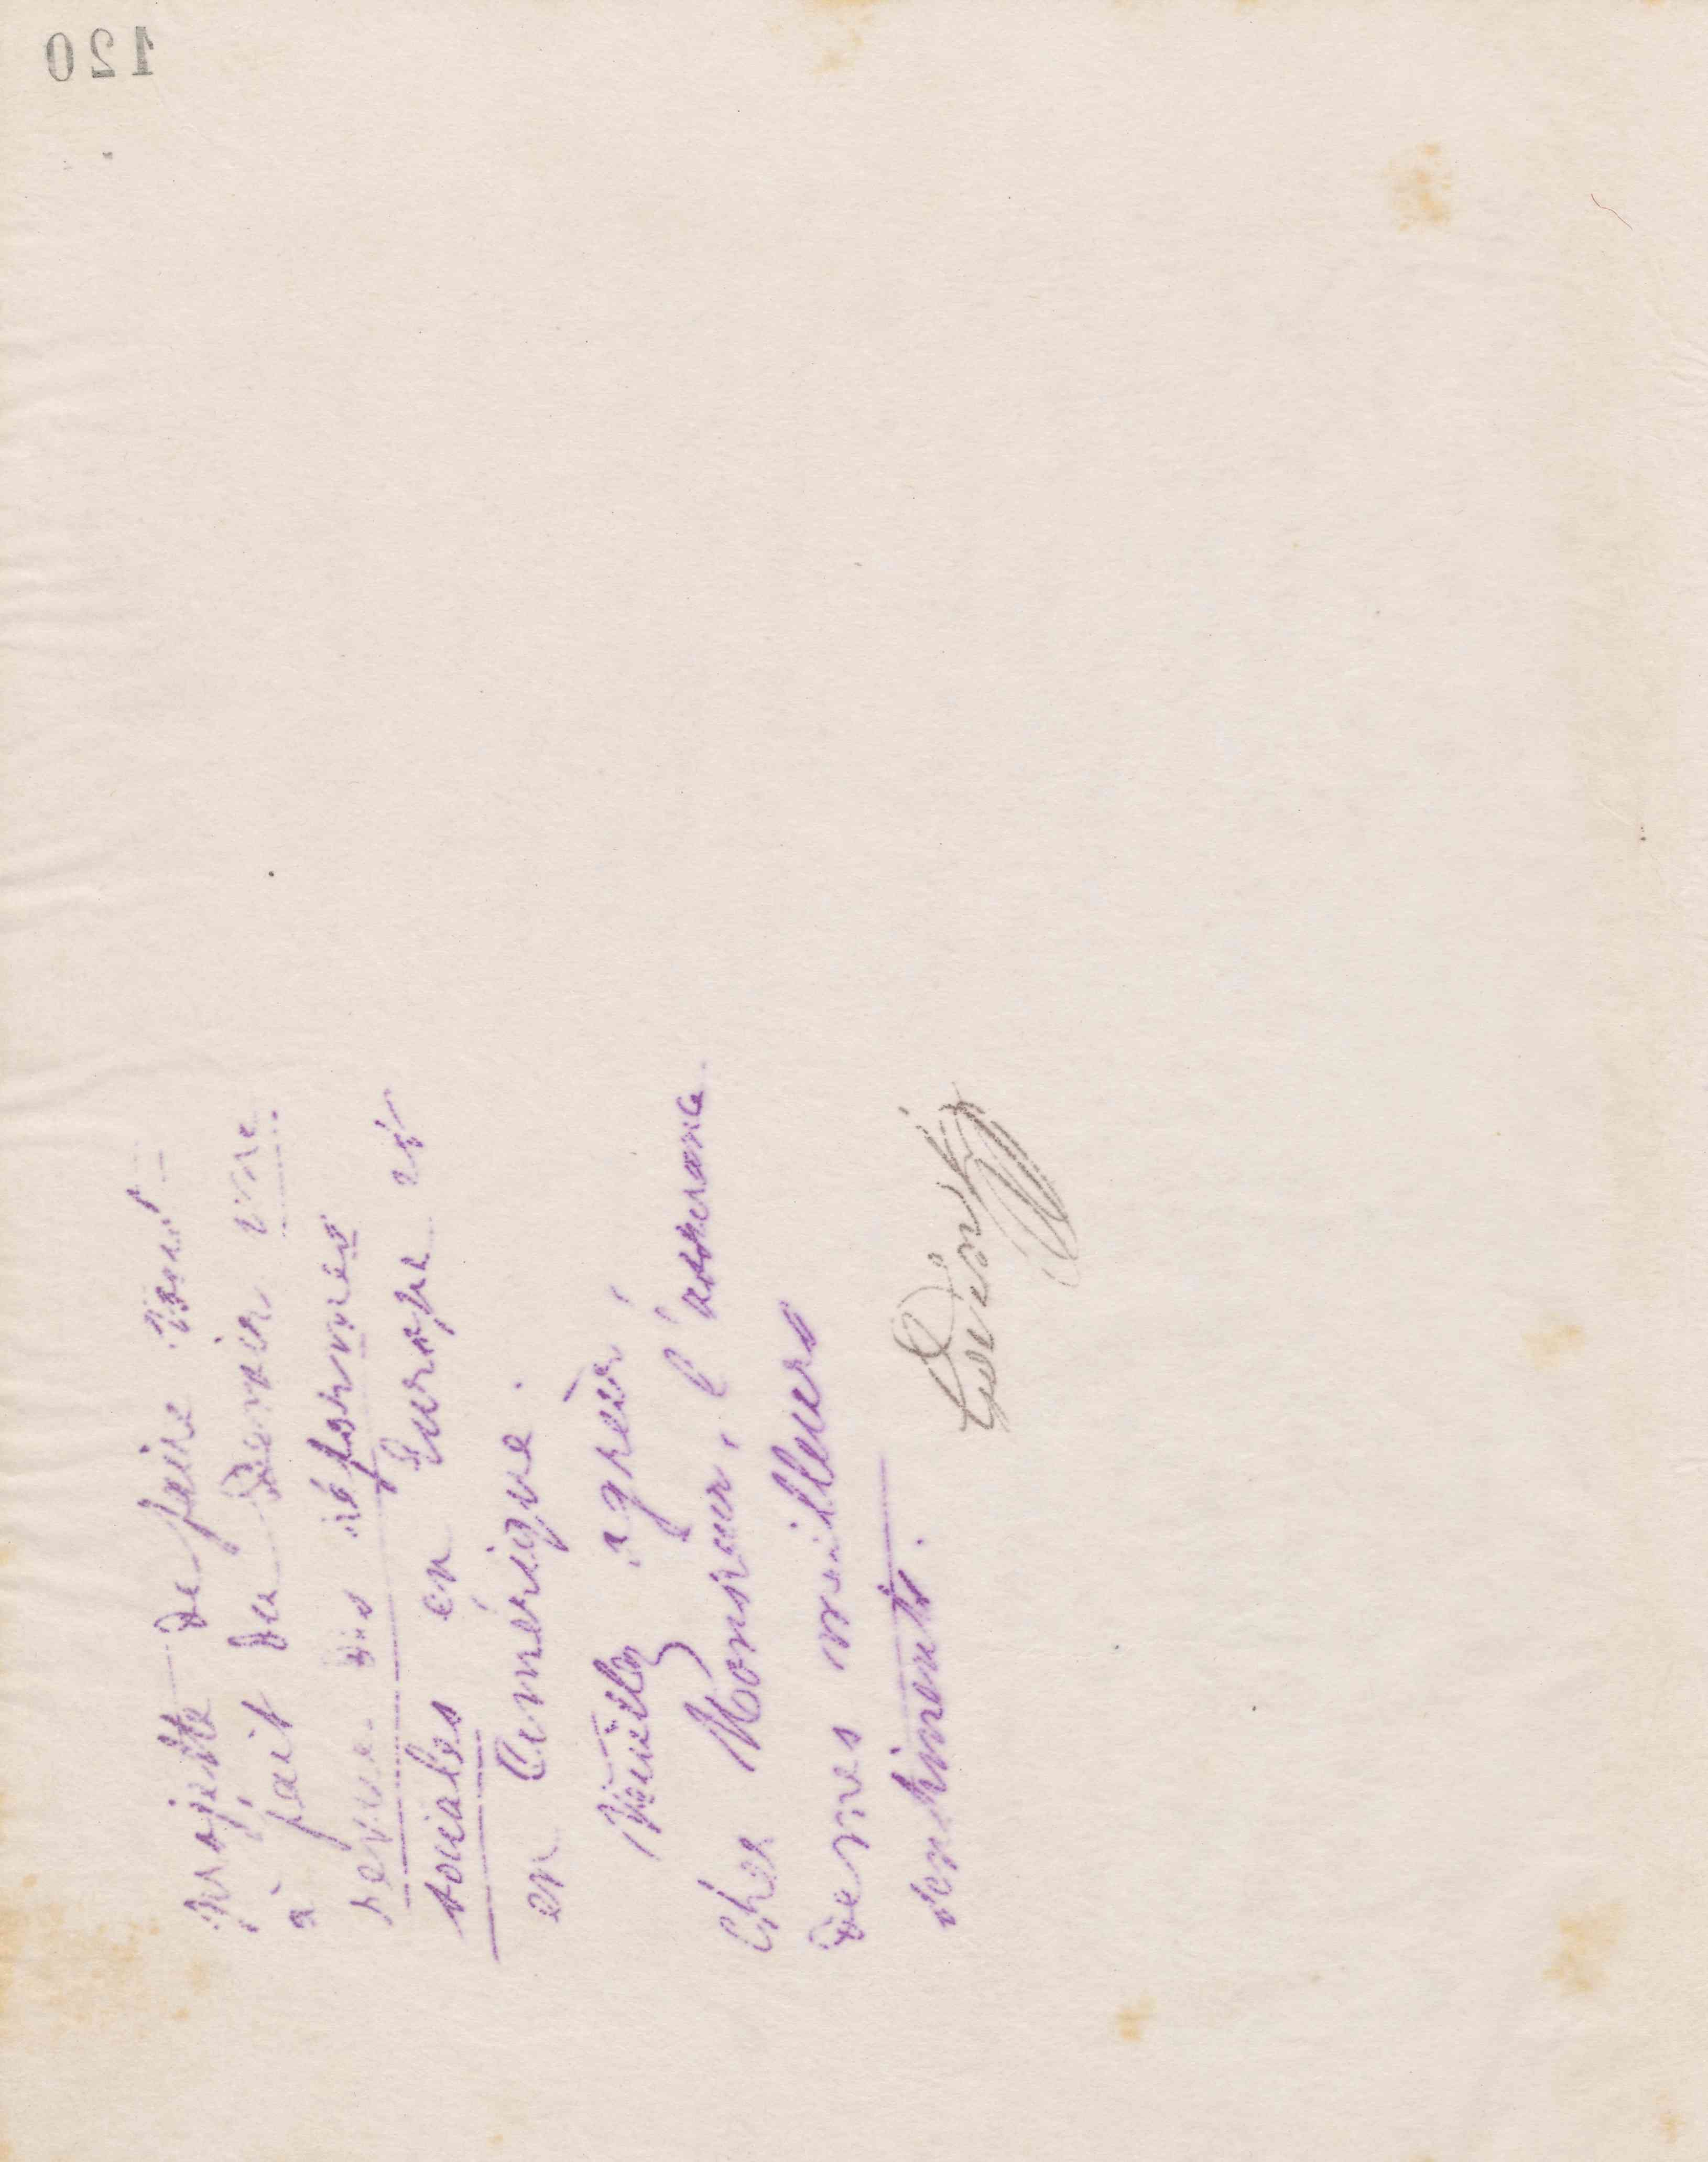 120
projette de faire tout
à fait du Devoir une
revue des réformes
sociales en Europe et
en Amérique.
Veuillez agréer,
Cher Monsieur, l'assurance
de mes meilleurs
sentiments.
Godin